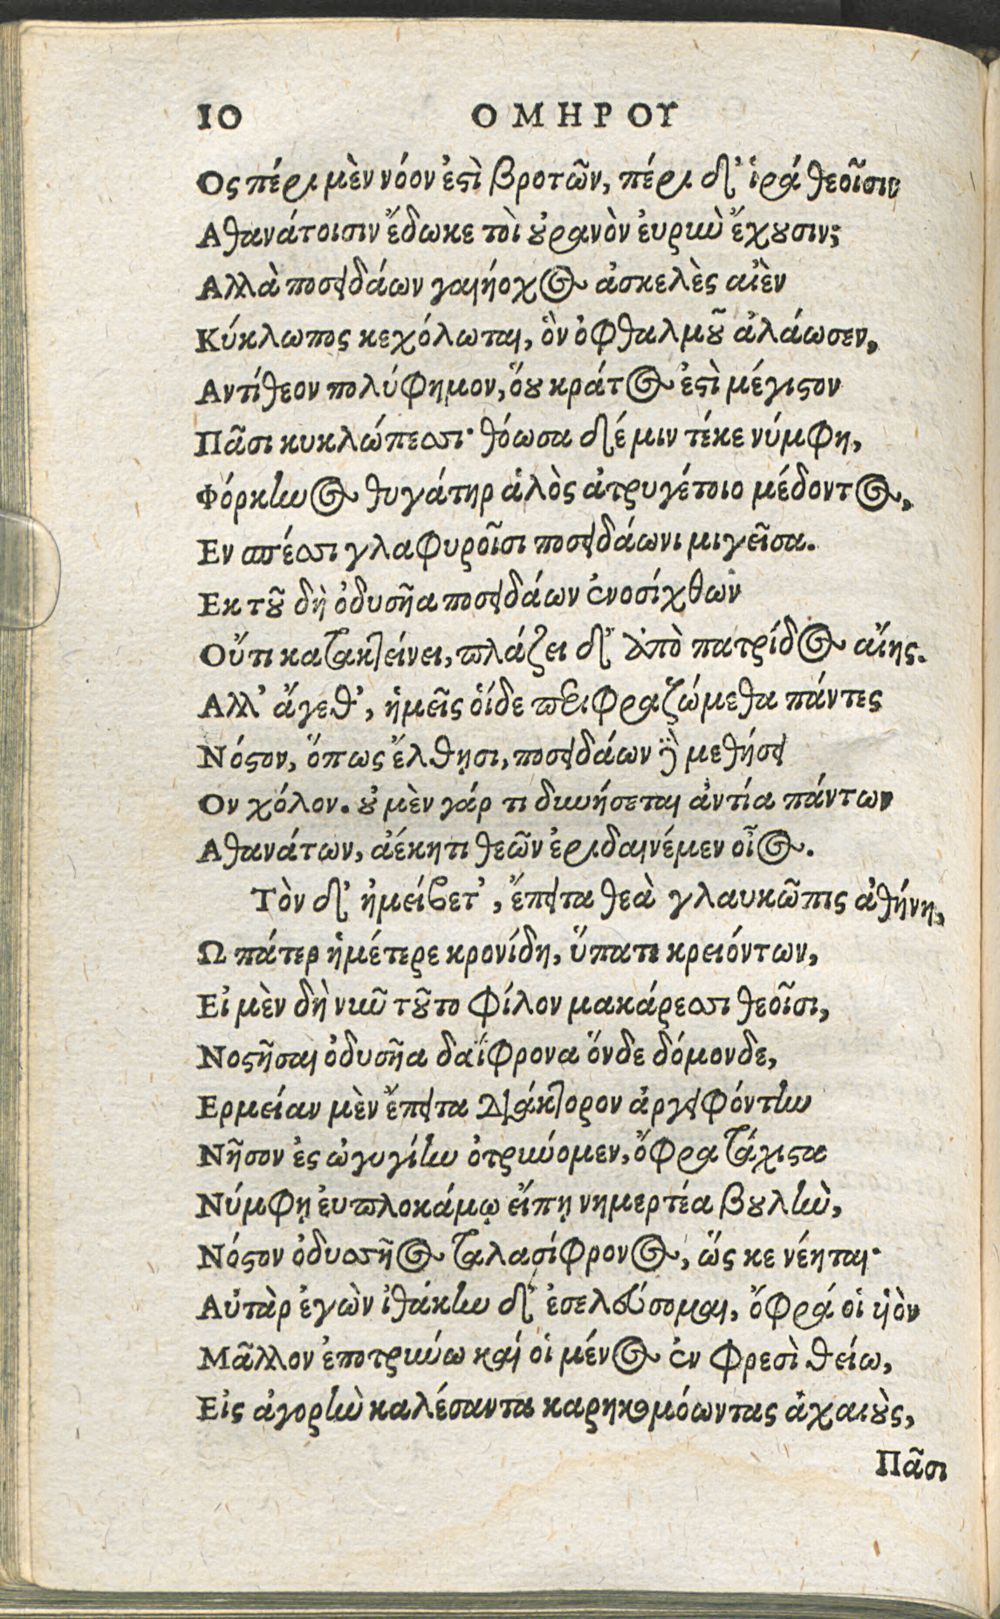 10 ΟΜΗΡΟΥ
Ος πέρι μὲν νόον ἐςὶ βροτῶν, πέρι δ᾽ ἱρά θεοῖσιν
Αθανάτοισιν ἔδωκε τοὶ οὐρανὸν ἐυρὺν ἔχουσιν;
Αλλὰ ποσειδάων γαιήοχος ἀσκελὲς αἰὲν
Κύκλωπος κεχόλωται, ὃν ὀφθαλμοῦ ἀλάωσεν,
Αντίθεον πολύφημον, ὅου κράτος ἐςὶ μέγιςον
Πᾶσι κυκλώπεσσι· θόωσα δέ μιν τέκε νύμφη,
Φόρκυνος θυγάτηρ ἁλὸς ἀτρυγέτοιο μέδοντος,
Εν σπέσσι γλαφυροῖσι ποσειδάωνι μιγεῖσα.
Εκ τοῦ δὴ ὀδυσῆα ποσειδάων ἐνοσίχθων
Οὔτι κατακτείνει, πλάζει δ᾽ ἀπὸ πατρίδος αἴης.
Αλλ᾽ ἄγεθ᾽, ἡμεῖς ὁίδε περιφραζώμεθα πάντες
Νόςον, ὅπως ἔλθησι, ποσειδάων δὲ μεθήσει
Ον χόλον. οὐ μὲν γάρ τι δυνήσεται ἀντία πάντων
Αθανάτων, ἀέκητι θεῶν ἐριδαινέμεν οἶος.
Τὸν δ᾽ ἠμείβετ᾽, ἔπειτα θεὰ γλαυκῶπις ἀθήνη,
Ω πάτερ ἡμέτερε κρονίδη, ὕπατε κρειόντων,
Εἰ μὲν δὴ νῦν τοῦτο φίλον μακάρεσσι θεοῖσι,
Νοςῆσαι ὀδυσῆα δαΐφρονα ὅνδε δόμονδε,
Ερμείαν μὲν ἔπειτα διάκτορον ἀργειφόντην
Νῆσον ἐς ὠγυγίην ὀτρύνομεν, ὄφρα τάχιςα
Νύμφῃ ἐυπλοκάμῳ εἴπῃ νημερτέα βουλὴν,
Νόςον ὀδυσσῆος ταλασίφρονος, ὥς κε νέηται·
Αὐτὰρ ἐγὼν ἰθάκην δ᾽ ἐσελεύσομαι, ὄφρά οἱ υἱὸν
Μᾶλλον ἐποτρύνω καί οἱ μένος ἐν φρεσὶ θείω,
Εἰς ἀγορὴν καλέσαντα καρηκομόωντας ἀχαιοὺς,
Πᾶσι